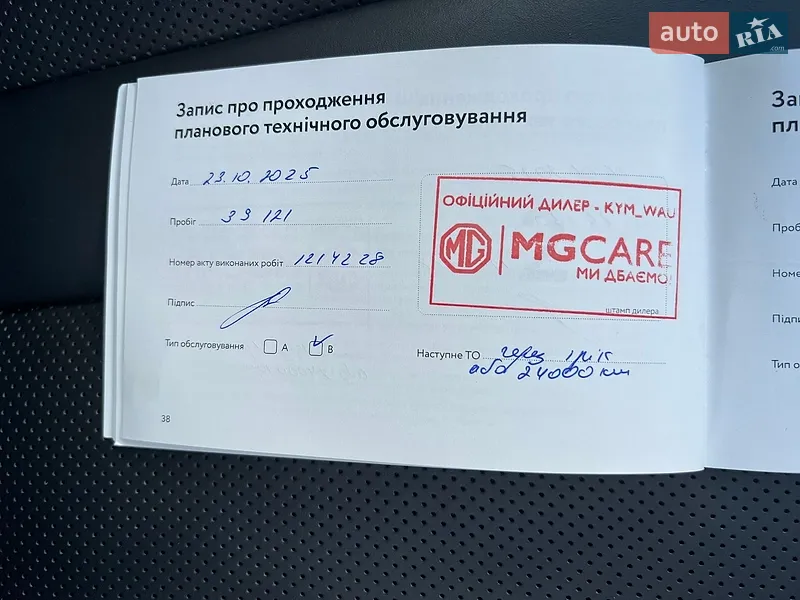 auto RIA.com
Запис про проходження
планового технічного обслуговування
Дата 23.10.2025
Пробіг 39 121
Номер акту виконаних робіт 1214228
Підпис
Тип обслуговування A B
ОФІЦІЙНИЙ ДИЛЕР - KYM_WAU
MG MGCARE
МИ ДБАЄМО!
штамп дилера
Наступне ТО через 1 рік
або 24000 км
38
За
пл
Дата
Проб
Номе
Підпи
Тип о